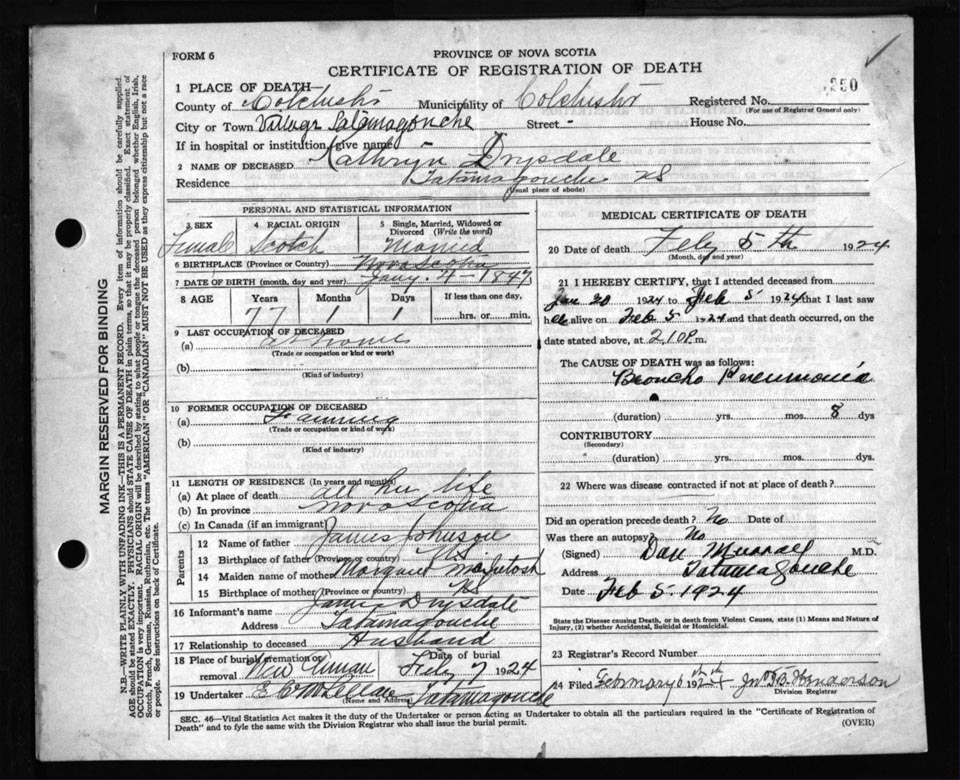 FORM 6
PROVINCE OF NOVA SCOTIA
CERTIFICATE OF REGISTRATION OF DEATH
350
1 PLACE OF DEATH—
County of Colchester Municipality of Colchester Registered No.
(For use of Registrar General only)
City or Town Village Tatamagouche Street - House No.
If in hospital or institution, give name
2 NAME OF DECEASED Kathryn Drysdale
Residence Tatamagouche NS
(usual place of abode)
PERSONAL AND STATISTICAL INFORMATION
3 SEX Female
4 RACIAL ORIGIN Scotch
5 Single, Married, Widowed or Divorced (Write the word) Married
6 BIRTHPLACE (Province or Country) Nova Scotia
7 DATE OF BIRTH (month, day and year) Jany. 4 - 1847
8 AGE Years Months Days If less than one day,
77 1 1 hrs. or min.
9 LAST OCCUPATION OF DECEASED
(a) at home
(Trade or occupation or kind or work)
(b)
(Kind of industry)
10 FORMER OCCUPATION OF DECEASED
(a) Farming
(Trade or occupation or kind of work)
(b)
(Kind of industry)
11 LENGTH OF RESIDENCE (In years and months)
(a) At place of death all her life
(b) In province Nova Scotia
(c) In Canada (if an immigrant)
Parents
12 Name of father James Johnson
13 Birthplace of father (Province or country) NS
14 Maiden name of mother Margaret McIntosh
15 Birthplace of mother (Province or country) NS
16 Informant's name James Drysdale
Address Tatamagouche
17 Relationship to deceased Husband
18 Place of burial, cremation or removal New Annan Date of burial Feby 7 1924
19 Undertaker Tatamagouche
(Name and Address)
MEDICAL CERTIFICATE OF DEATH
20 Date of death Feby 5th 1924
(Month, day and year)
21 I HEREBY CERTIFY, that I attended deceased from
Jan 20 1924 to Feb 5 1924 that I last saw
h er alive on Feb 5 1924 and that death occurred, on
date stated above, at 2.10 P. m.
The CAUSE OF DEATH was as follows:
Broncho Pneumonia
(duration) yrs. mos. 8 dys
CONTRIBUTORY
(Secondary)
(duration) yrs. mos. dys.
22 Where was disease contracted if not at place of death?
Did an operation precede death? No Date of
Was there an autopsy? No
(Signed) Dan Murray M.D.
Address Tatamagouche
Date Feb 5. 1924
State the Disease causing Death, or in death from Violent Causes, state (1) Means and Nature of
Injury, (2) whether Accidental, Suicidal or Homicidal.
23 Registrar's Record Number
24 Filed February 6th 1924 Henderson
Division Registrar
SEC. 46—Vital Statistics Act makes it the duty of the Undertaker or person acting as Undertaker to obtain all the particulars required in the "Certificate of Registration of
Death" and to fyle the same with the Division Registrar who shall issue the burial permit.
(OVER)
MARGIN RESERVED FOR BINDING
N.B.—WRITE PLAINLY, WITH UNFADING INK—THIS IS A PERMANENT RECORD. Every item of information should be carefully supplied.
AGE should be stated EXACTLY. PHYSICIANS should STATE CAUSE OF DEATH in plain terms, so that it may be properly classified. Exact statement of
OCCUPATION is very important. RACIAL ORIGIN will be described by stating to what people or tongue the deceased person belonged whether English, Irish,
Scotch, French, German, Russian, Ruthenian, etc. The terms "AMERICAN" or "CANADIAN" MUST NOT BE USED as they express citizenship but not a race
or people. See instructions on back of Certificate.